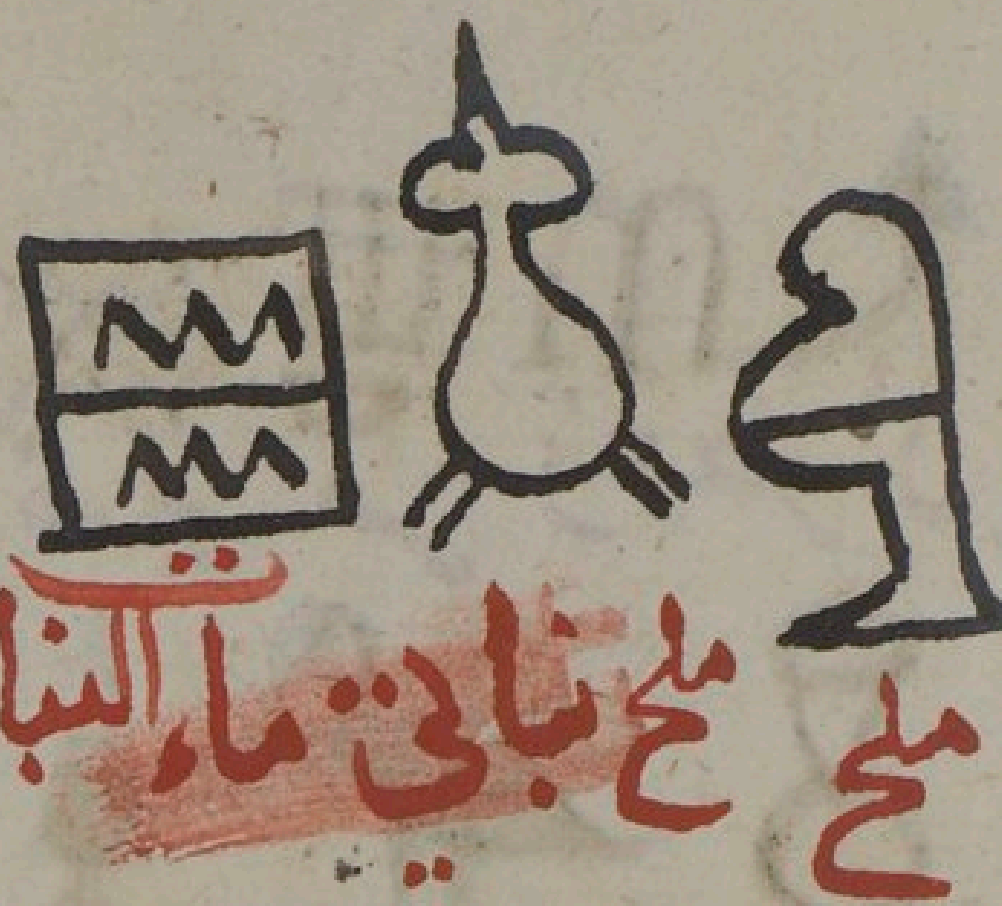 ملح ملح نباتي ماء النبات